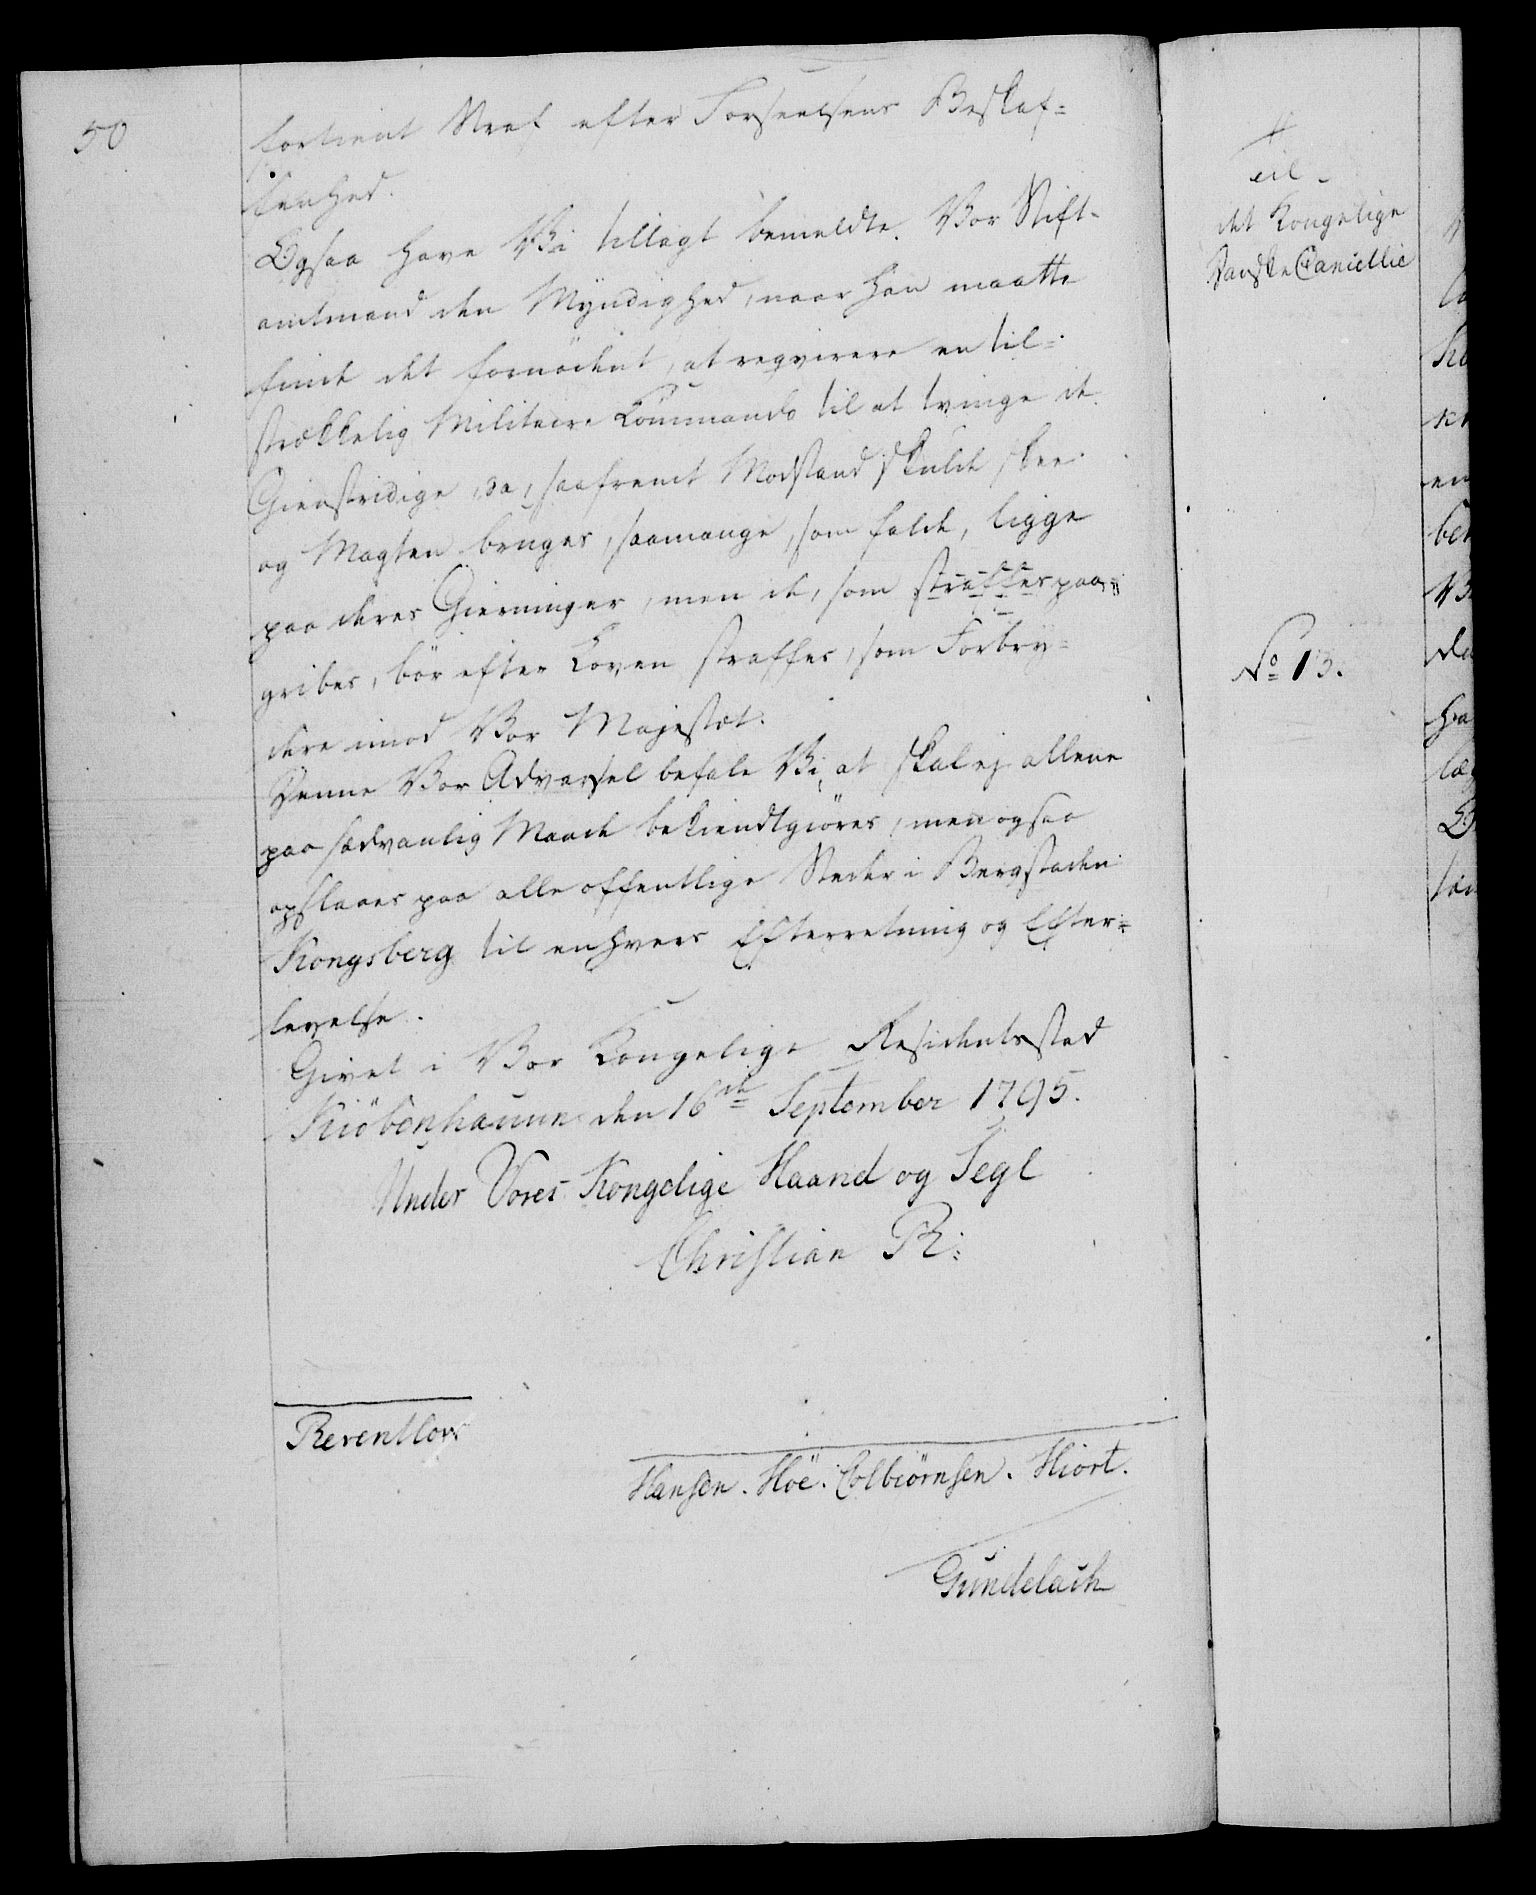 50
fortient Straf efter Forseelsens Beskaf=
fenhed.
Ogsaa have Vi tillagt bemeldte Vor Stift-
amtmand den Myndighed, naar han maatte
finde det fornödent, at reqvirere en til=
strækkelig Militaire Commando til at tvinge de
Gienstridige, da, saafremt Modstand skulde skee
og Magten bruges, saamange, som falde, ligge
paa deres Gierninger, men de, som straffes paa=
gribes, bör efter Loven straffes, som Forbry=
dere imod Vor Majestæt.
Denne Vor Advarsel befale Vi, at skal ej allene
paa sædvanlig Maade bekiendtgiöres, men ogsaa
opslaaes paa alle offentlige Steder i Bergstaden
Kongsberg til enhvers Efterretning og Efter=
levelse.
Givet i Vor Kongelige Residentsstad
Kiöbenhaunn den 16de September 1795.
Under Vores Kongelige Haand og Segl
Christian R:
Reventlow
Hansen. Höe. Colbiörnsen. Hiort.
Gundelach
Til
det Kongelige
Danske Cancellie
No 13.